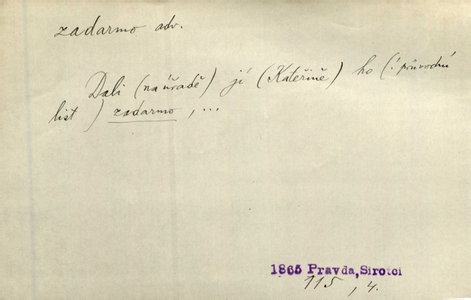 zadarmo adv.
Dali (na úřadě) jí (Kateřině) ho (: průvodní
list) zadarmo, ...
1865 Pravda, Sirotci
115, 4.